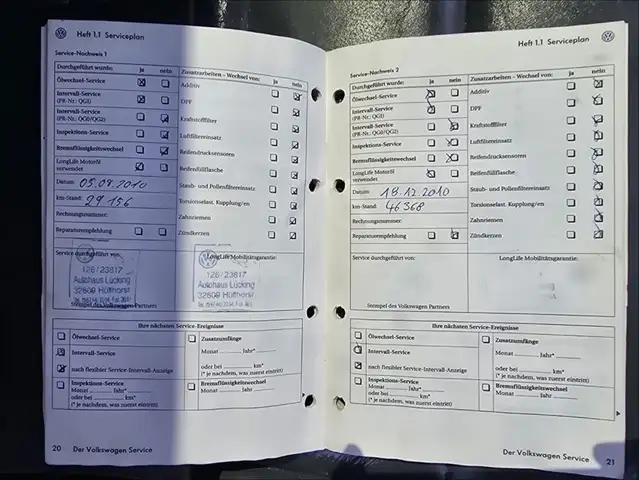 Heft 1.1 Serviceplan
Service-Nachweis 1
Durchgeführt wurde: ja nein
Ölwechsel-Service
Intervall-Service
(PR-Nr.: QG1)
Intervall-Service
(PR-Nr.: QG0/QG2)
Inspektions-Service
Bremsflüssigkeitswechsel
LongLife Motoröl
verwendet
Datum: 05.07.2010
km-Stand: 29 156
Rechnungsnummer:
Reparaturempfehlung
Zusatzarbeiten – Wechsel von: ja nein
Additiv
DPF
Kraftstofffilter
Luftfiltereinsatz
Reifendrucksensoren
Reifenfüllflasche
Staub- und Pollenfiltereinsatz
Torsionselast. Kupplung/en
Zahnriemen
Zündkerzen
Service durchgeführt von:
126/23817
Autohaus Lücking
32609 Hüllhorst
Stempel des Volkswagen Partners
LongLife Mobilitätsgarantie:
126/23817
Autohaus Lücking
32609 Hüllhorst
Ihre nächsten Service-Ereignisse
Ölwechsel-Service
Intervall-Service
nach flexibler Service-Intervall-Anzeige
Zusatzumfänge
Monat Jahr*
oder bei km*
(* je nachdem, was zuerst eintritt)
Inspektions-Service
Monat Jahr*
oder bei km*
(* je nachdem, was zuerst eintritt)
Bremsflüssigkeitswechsel
Monat Jahr
20 Der Volkswagen Service
Heft 1.1 Serviceplan
Service-Nachweis 2
Durchgeführt wurde: ja nein
Ölwechsel-Service
Intervall-Service
(PR-Nr.: QG1)
Intervall-Service
(PR-Nr.: QG0/QG2)
Inspektions-Service
Bremsflüssigkeitswechsel
LongLife Motoröl
verwendet
Datum: 18.12.2010
km-Stand: 46 368
Rechnungsnummer:
Reparaturempfehlung
Zusatzarbeiten – Wechsel von: ja nein
Additiv
DPF
Kraftstofffilter
Luftfiltereinsatz
Reifendrucksensoren
Reifenfüllflasche
Staub- und Pollenfiltereinsatz
Torsionselast. Kupplung/en
Zahnriemen
Zündkerzen
Service durchgeführt von:
Stempel des Volkswagen Partners
LongLife Mobilitätsgarantie:
Ihre nächsten Service-Ereignisse
Ölwechsel-Service
Intervall-Service
nach flexibler Service-Intervall-Anzeige
Zusatzumfänge
Monat Jahr*
oder bei km*
(* je nachdem, was zuerst eintritt)
Inspektions-Service
Monat Jahr*
oder bei km*
(* je nachdem, was zuerst eintritt)
Bremsflüssigkeitswechsel
Monat Jahr
Der Volkswagen Service 21